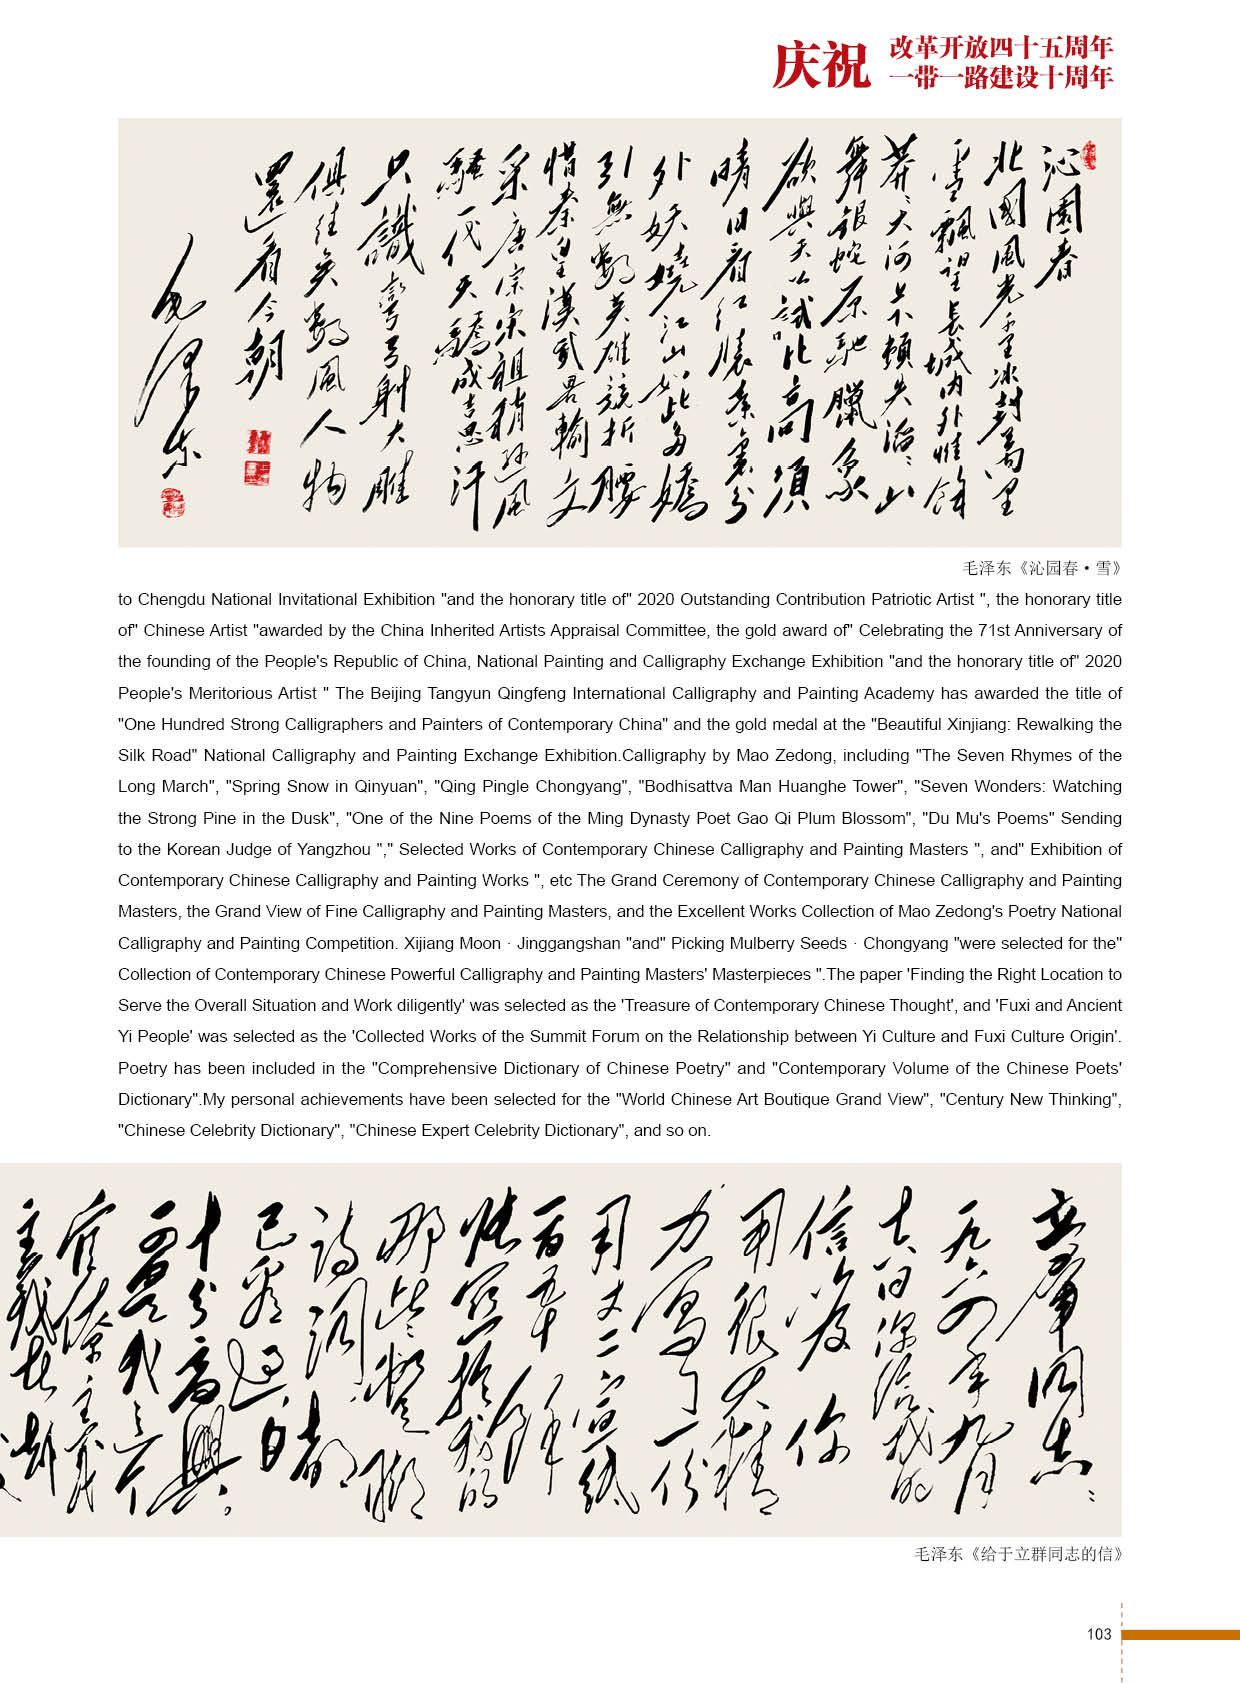 庆祝
改革开放四十五周年
一带一路建设十周年
沁園春
北國風光千里冰封萬里
雪飄望長城内外惟餘
莽莽大河上下頓失滔滔山
舞銀蛇原馳臘象
欲與天公試比高須
晴日看紅裝素裹分
外妖嬈江山如此多嬌
引無數英雄競折腰
惜秦皇漢武略輸文
采唐宗宋祖稍遜風
騷一代天驕成吉思汗
只識彎弓射大雕
俱往矣數風人物
還看今朝
毛澤東
毛泽东《沁园春·雪》
to Chengdu National Invitational Exhibition "and the honorary title of" 2020 Outstanding Contribution Patriotic Artist ", the honorary title
of" Chinese Artist "awarded by the China Inherited Artists Appraisal Committee, the gold award of" Celebrating the 71st Anniversary of
the founding of the People's Republic of China, National Painting and Calligraphy Exchange Exhibition "and the honorary title of" 2020
People's Meritorious Artist " The Beijing Tangyun Qingfeng International Calligraphy and Painting Academy has awarded the title of
"One Hundred Strong Calligraphers and Painters of Contemporary China" and the gold medal at the "Beautiful Xinjiang: Rewalking the
Silk Road" National Calligraphy and Painting Exchange Exhibition.Calligraphy by Mao Zedong, including "The Seven Rhymes of the
Long March", "Spring Snow in Qinyuan", "Qing Pingle Chongyang", "Bodhisattva Man Huanghe Tower", "Seven Wonders: Watching
the Strong Pine in the Dusk", "One of the Nine Poems of the Ming Dynasty Poet Gao Qi Plum Blossom", "Du Mu's Poems" Sending
to the Korean Judge of Yangzhou "," Selected Works of Contemporary Chinese Calligraphy and Painting Masters ", and" Exhibition of
Contemporary Chinese Calligraphy and Painting Works ", etc The Grand Ceremony of Contemporary Chinese Calligraphy and Painting
Masters, the Grand View of Fine Calligraphy and Painting Masters, and the Excellent Works Collection of Mao Zedong's Poetry National
Calligraphy and Painting Competition. Xijiang Moon · Jinggangshan "and" Picking Mulberry Seeds · Chongyang "were selected for the"
Collection of Contemporary Chinese Powerful Calligraphy and Painting Masters' Masterpieces ".The paper 'Finding the Right Location to
Serve the Overall Situation and Work diligently' was selected as the 'Treasure of Contemporary Chinese Thought', and 'Fuxi and Ancient
Yi People' was selected as the 'Collected Works of the Summit Forum on the Relationship between Yi Culture and Fuxi Culture Origin'.
Poetry has been included in the "Comprehensive Dictionary of Chinese Poetry" and "Contemporary Volume of the Chinese Poets'
Dictionary".My personal achievements have been selected for the "World Chinese Art Boutique Grand View", "Century New Thinking",
"Chinese Celebrity Dictionary", "Chinese Expert Celebrity Dictionary", and so on.
立羣同志:
九六四年九月
日你給我的
信 你
用很大精
力寫了一份
用丈二宣紙
於我的
那些蹩腳
詩詞 都
已看過,日
十分高興。
可是我
官僚主義
主義
毛泽东《给于立群同志的信》
103